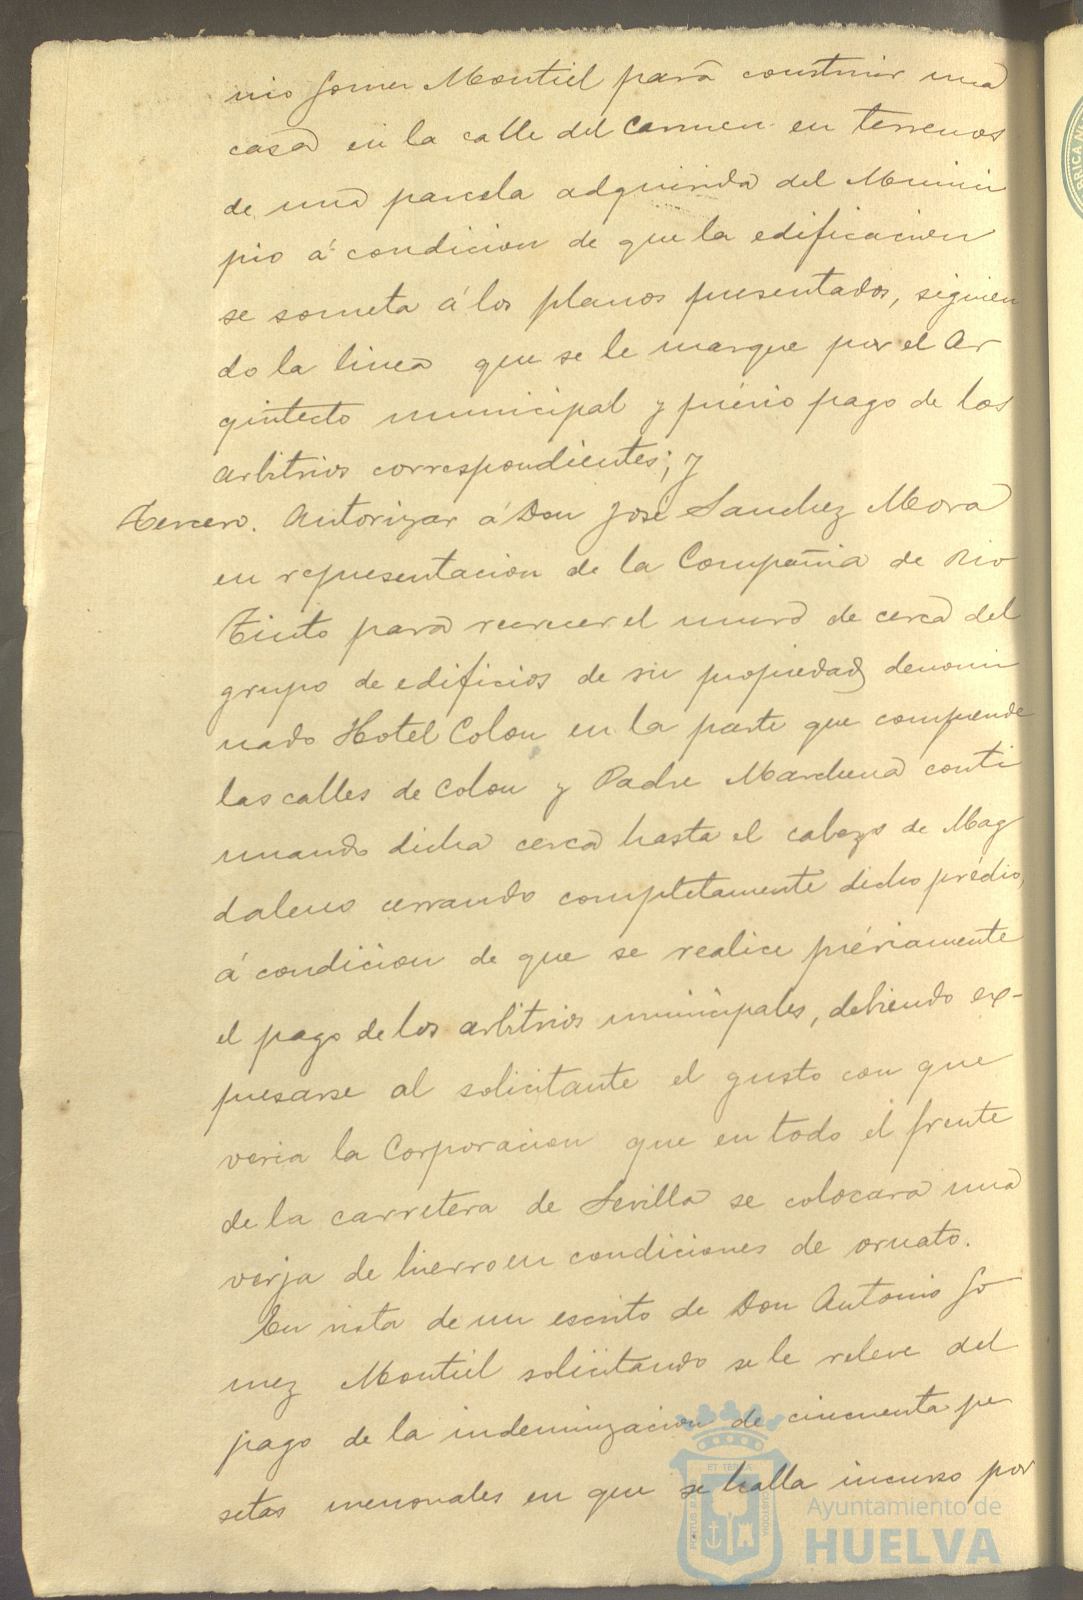 nio Gomez Montiel para construir una
casa en la calle del Carmen en terrenos
de una parcela adquirida del Munici
pio á condicion de que la edificacion
se someta á los planos presentados, siguien
do la linea que se le marque por el Ar
quitecto municipal y prévio pago de los
arbitrios correspondientes; y
Tercero. Autorizar á Don José Sanchez Mora
en representacion de la Compañia de Rio
Tinto para recrecer el muro de cerca del
grupo de edificios de su propiedad denomi
nado Hotel Colon en la parte que comprende
las calles de Colon y Padre Marchena conti
nuando dicha cerca hasta el cabezo de Mag
daleno cerrando completamente dicho prédio,
á condicion de que se realice préviamente
el pago de los arbitrios municipales, debiendo ex-
presarse al solicitante el gusto con que
veria la Corporacion que en todo el frente
de la carretera de Sevilla se colocara una
verja de hierro en condiciones de ornato.
En vista de un escrito de Don Antonio Go
mez Montiel solicitando se le releve del
pago de la indemnizacion de cincuenta pe
setas mensuales en que se halla incurso por
ET TERRÆ
PORTUS MARIS
CUSTODIA
Ayuntamiento de
HUELVA